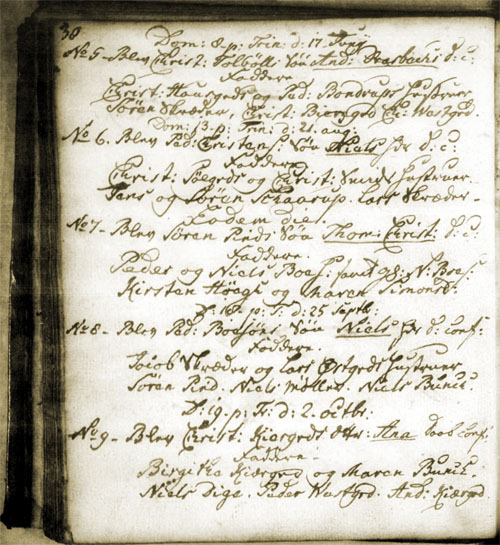 38
Dom: 8. p: Trin: d: 17. July
No 5 - Blev Christ: Tolbøll Søn And: d: c:
Faddere
Christ: Hausgrds og Pad: Bondrups Hustruer
Søren Skræder, Christ: Bierggrd Ch: Wastgrd.
Dom: 13. p: Trin: d: 21. aug:
No 6. Blev Pad: Christens: Søn Niels d: c:
Faddere
Christ: og Christ: Smeds Hustruer
Jens og Søren Skaarup. Lars Skræder -
Eodem die
No 7 - Blev Søren Pinds Søn Thom: Christ: d: c:
Faddere.
Peder og Niels Boes: N: Boes:
Kirsten Høegs og Maren Simonsd:
D: 18. p: T: d: 25 Septb:
No 8 - Blev Pad: Boesens Søn Niels d: Conf:
Faddere.
Jacob Skræder og Lars Østgrds Hustruer
Søren Pind. Niels Møller. Niels Bunch.
D: 19. p: Tr: d: 2. Octbr:
No 9 - Blev Christ: Kiærgrds Dtter: Ana Daab Conf:
Faddere -
Birgitha Kiærgrd og Maren Bunch.
Niels Dige. Peder Wastgrd. And: Kiærgrd.